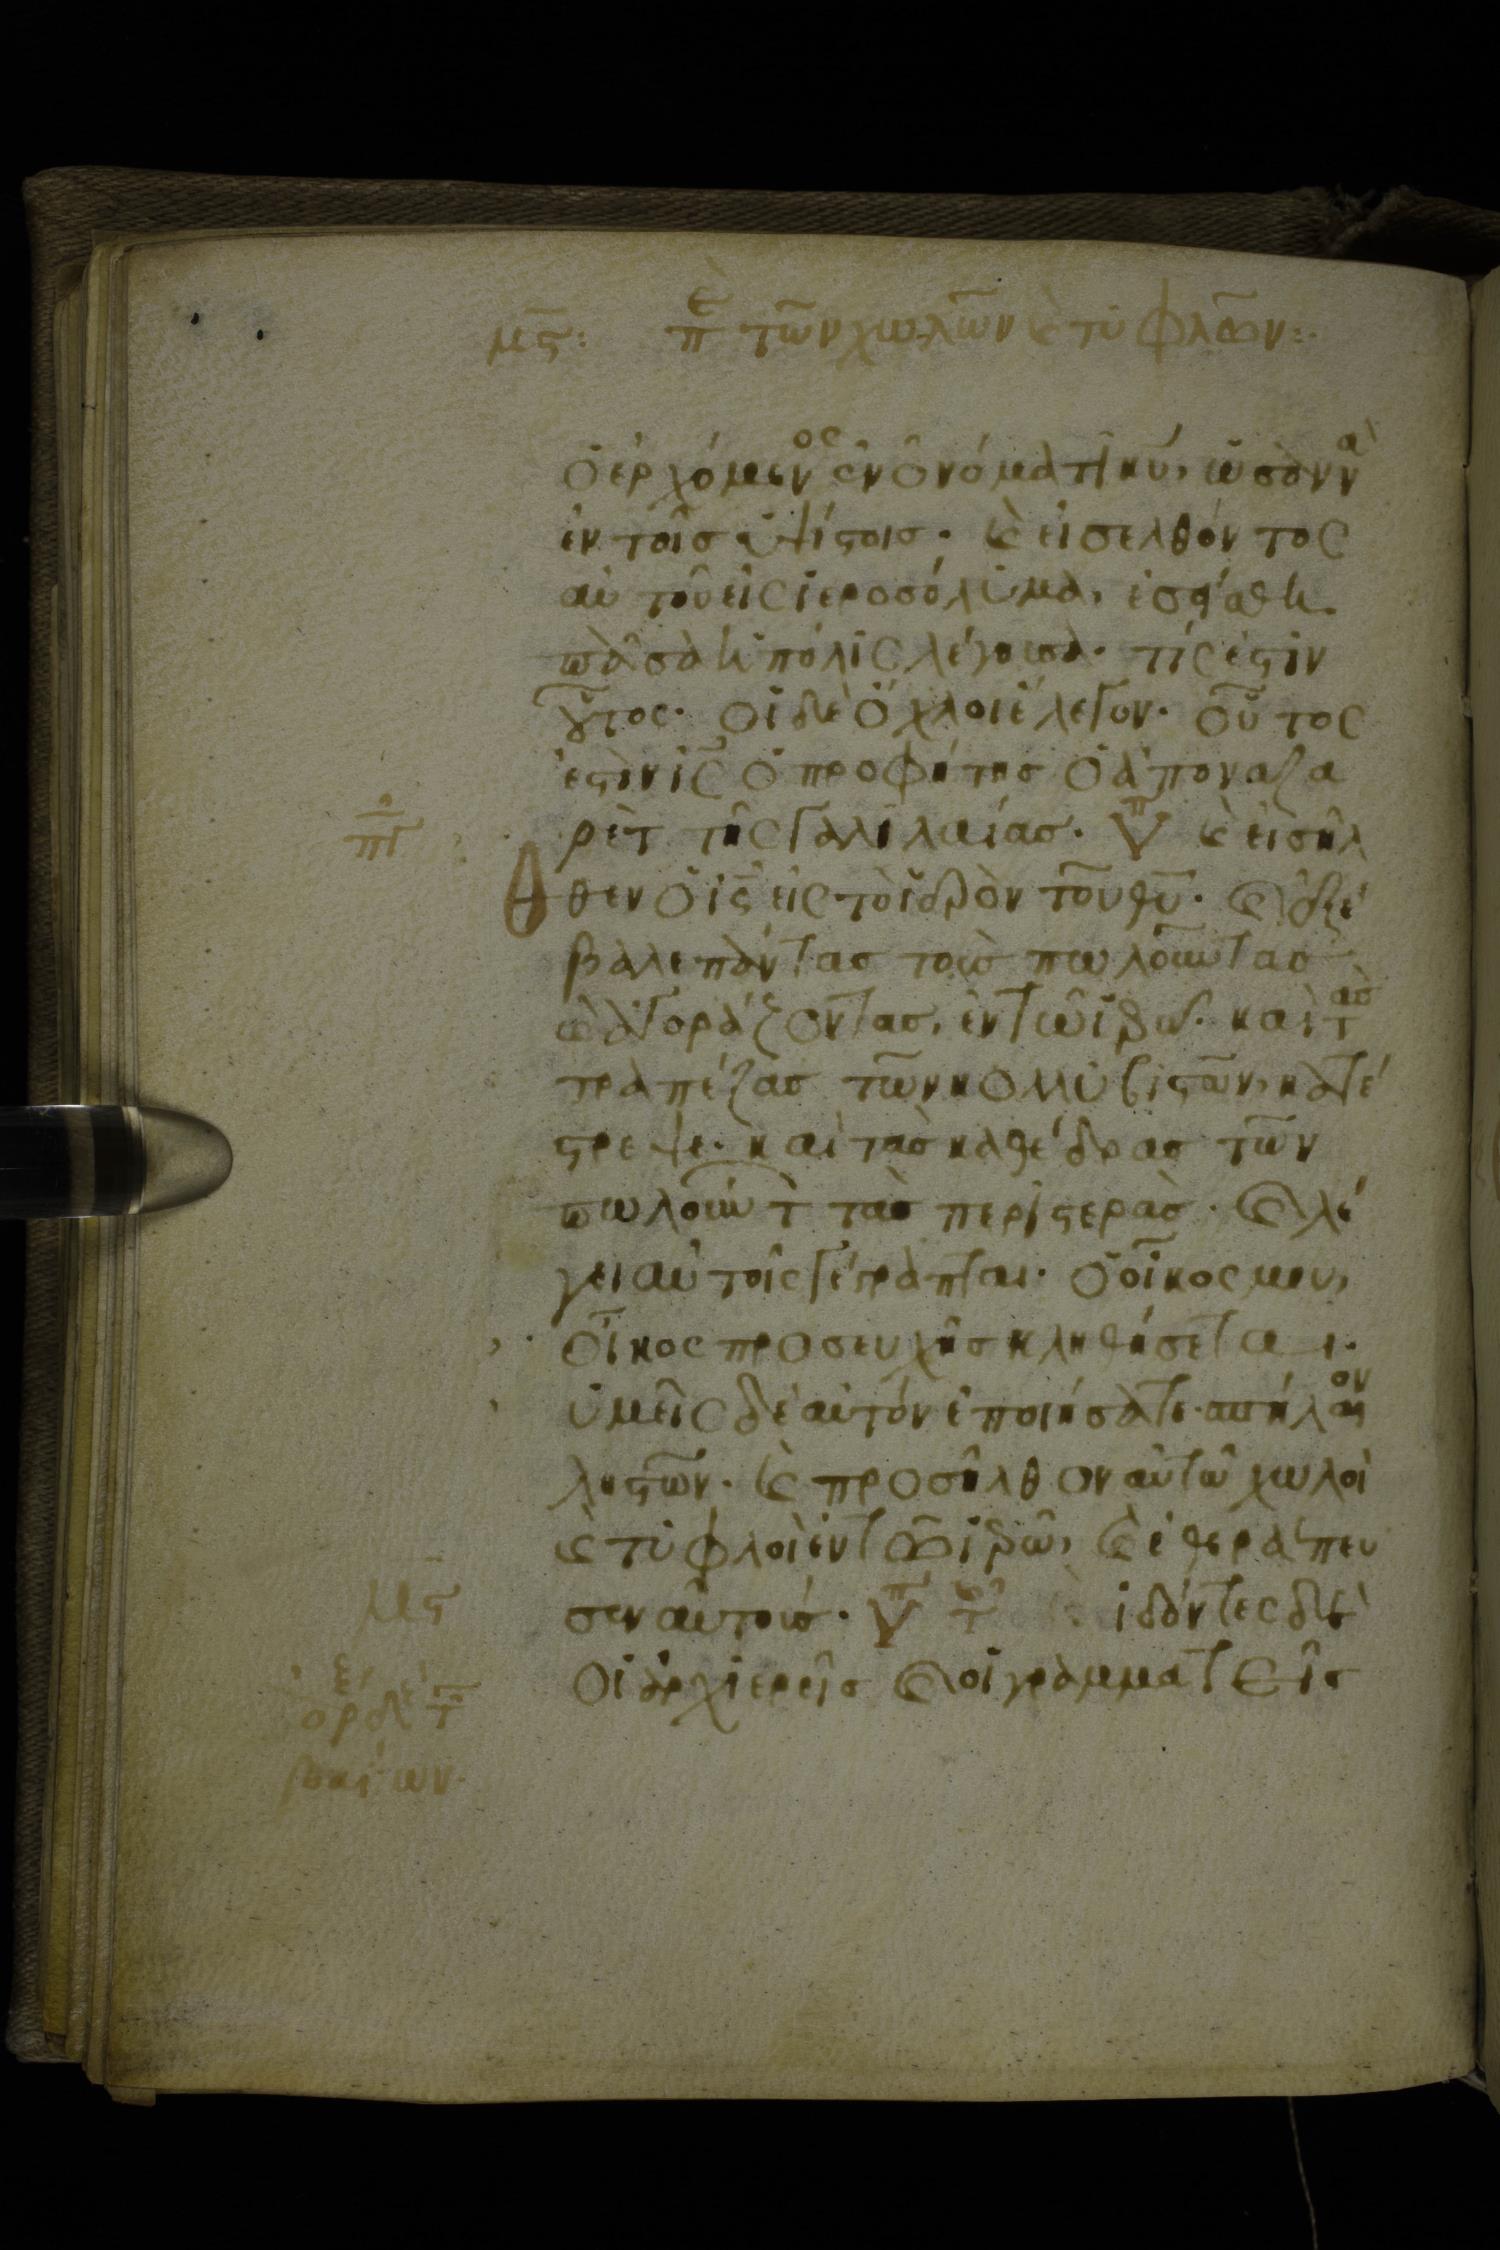 μϛ: πε τῶν χωλῶν κ τυφλῶν:·
ὁ ἐρχόμενος ἐν ὀνόματι κυ, ὡσαννὰ
ἐν τοῖς ὑψίστοις· κ εἰσελθόντος
αὐτοῦ εἰς ἱεροσόλυμα, ἐσείσθη
πᾶσα ἡ πόλις λέγουσα· τίς ἐστιν
οὗτος· οἱ δὲ ὄχλοι ἔλεγον· οὗτός
ἐστιν ις ὁ προφήτης ὁ ἀπὸ ναζα
ρὲτ τῆς γαλιλαίας· κ εἰσῆλ
θεν ὁ ις εἰς τὸ ἱερὸν τοῦ θυ· κ ἐξέ
βαλε πάντας τοὺς πωλοῦντας
κ ἀγοράζοντας, ἐν τῶ ἱερῶ· καὶ τὰς
τραπέζας τῶν κολλυβιστῶν, κατέ
στρεψε· καὶ τὰς καθέδρας τῶν
πωλούντ τὰς περιστερὰς· κ λέ
γει αὐτοῖς γέγραπται· ὁ οἶκος μου,
οἶκος προσευχῆς κληθήσεται·
ὑμεῖς δὲ αὐτὸν ἐποιήσατε· σπήλαιον
ληστῶν· κ προσῆλθον αὐτῶ χωλοὶ
κ τυφλοὶ ἐν τῶ ἱερῶ, κ ἐθεράπευ
σεν αὐτούς· ἰδόντες δὲ
οἱ ἀρχιερεῖς κ οἱ γραμματεῖς
μϛ
βαίων·